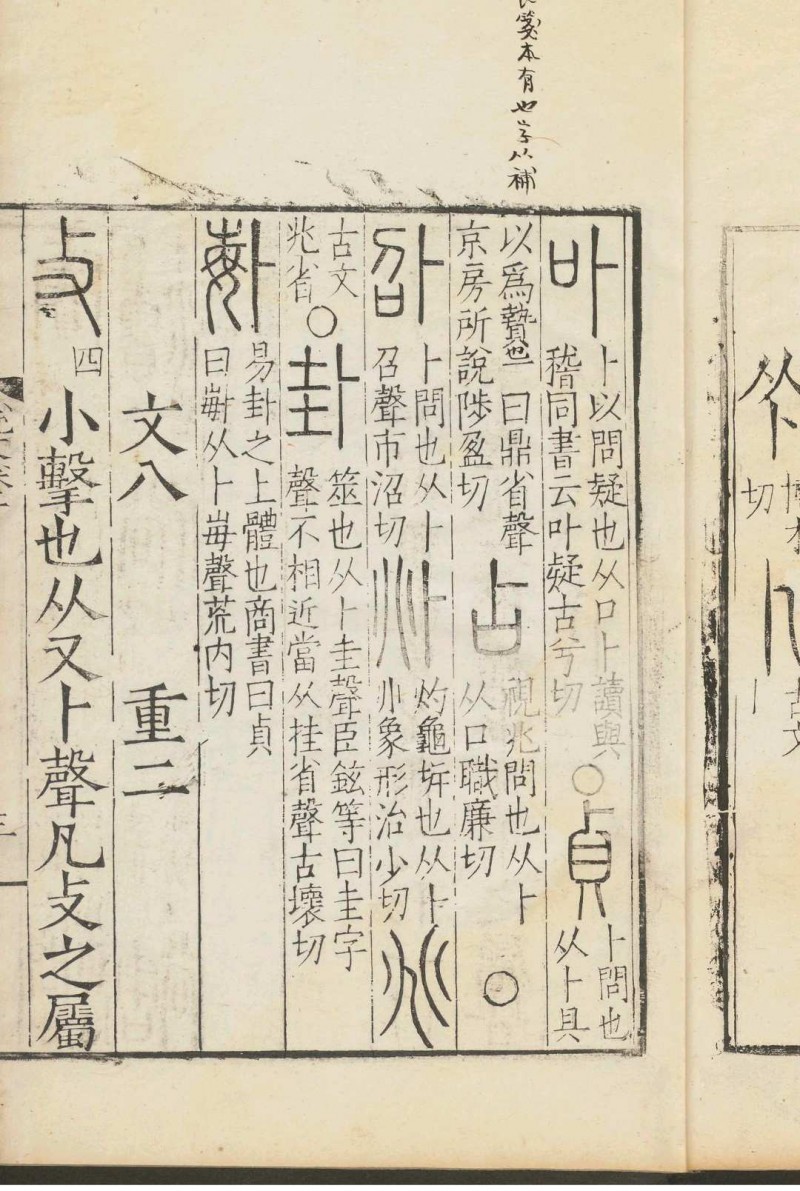 箋本有也字以補
切
古文
卟 卜以問疑也从口卜讀與
稽同書云卟疑古兮切
○貞 卜問也
从卜貝
以爲贄也一曰鼎省聲
京房所說陟盈切
占 視兆問也从卜
从口職廉切 ○
卧 卜問也从卜
召聲市沼切
𠧞 灼龜坼也从卜
小象形治少切
兆 古文
兆省○卦 筮也从卜圭聲臣鉉等曰圭字
聲不相近當从挂省聲古壞切
易卦之上體也商書曰貞
曰𠧩从卜每聲荒内切
文八 重二
攴四 小擊也从又卜聲凡攴之屬